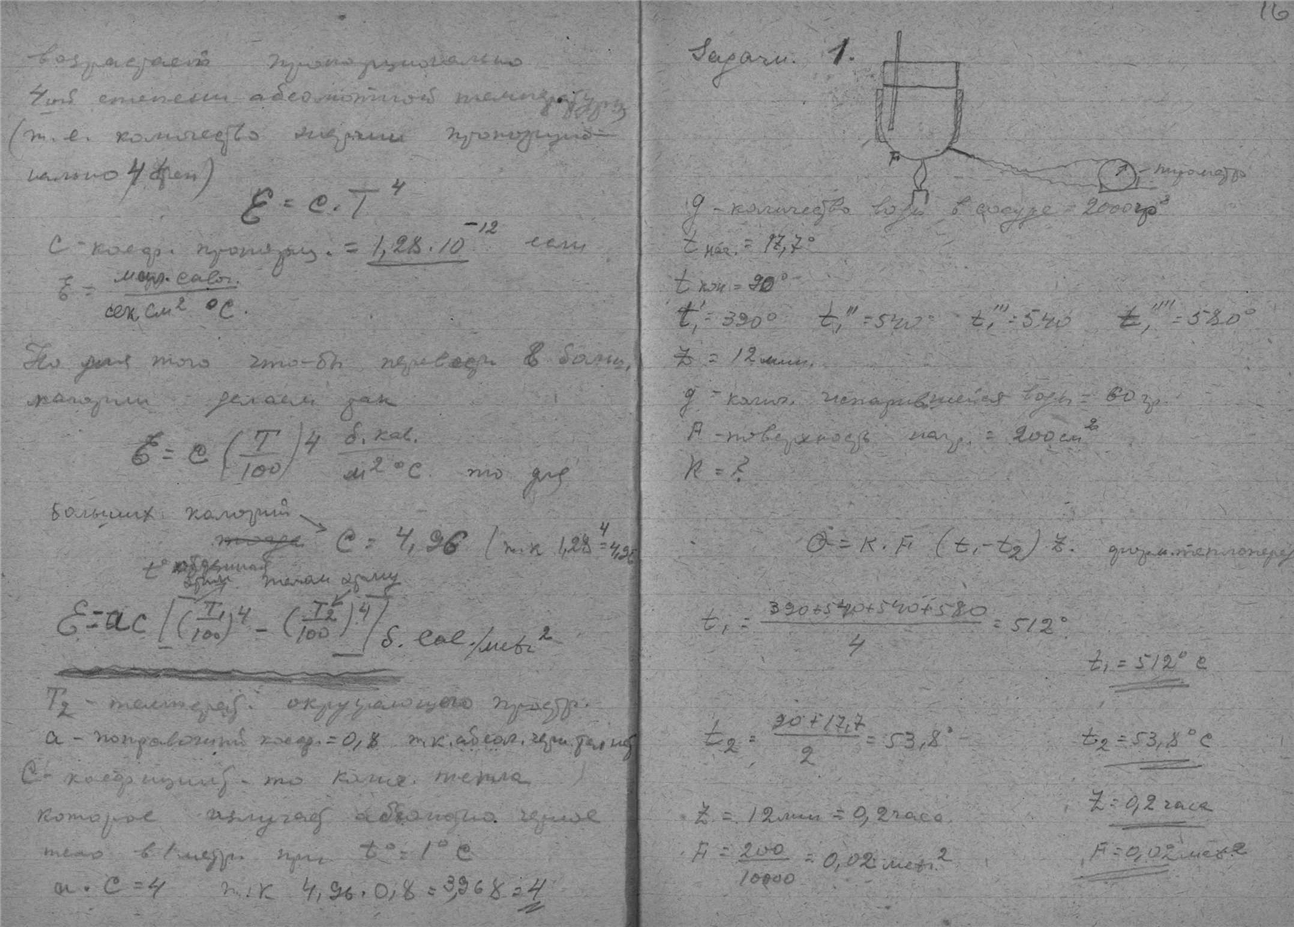 возрастает пропорционально
4ой степени абсолютной температуры
(т.е. количество энергии пропорцио-
нально 4 )
E = c·T⁴
C - коэф. пропорц. = 1,28·10⁻¹² если
E = мал. calor. / сек. см² °C.
Но для того что-бы перевести в больш.
калории делаем так
E = c (T/100)⁴ б. кал. / м² °C то для
больших калорий
C = 4,96 (т.к 1,28⁴ = 4,96
t°
E = ac [(T₁/100)⁴ - (T₂/100)⁴] б. cal./metr²
T₂ - температ. окружающего простр.
a - поправочный коэф. = 0,8 т.к. абсол. черн. тел нет
C - коефициент - то колич. тепла
которое излучает абсолютно черное
тело в 1 метр. при t° = 1° C
a·C = 4 т.к 4,96·0,8 = 3,968 = 4
16
Задачи. 1.
F
- пирометр
g - количество воды в сосуде = 2000 гр
t нач. = 17,7°
t кон = 90°
t₁' = 390° t₁'' = 540° t₁''' = 540 t₁'''' = 580°
Z = 12 мин.
g' - колич. испарившейся воды = 60 гр.
F - поверхность нагр. = 200 см²
K = ?
Q = K·F (t₁-t₂) Z. форм. теплоперед
t₁ = 390+540+540+580 / 4 = 512°
t₁ = 512° C
t₂ = 90+17,7 / 2 = 53,8°
t₂ = 53,8° C
Z = 12 мин = 0,2 часа
Z = 0,2 часа
F = 200 / 10000 = 0,02 метр²
F = 0,02 метр²